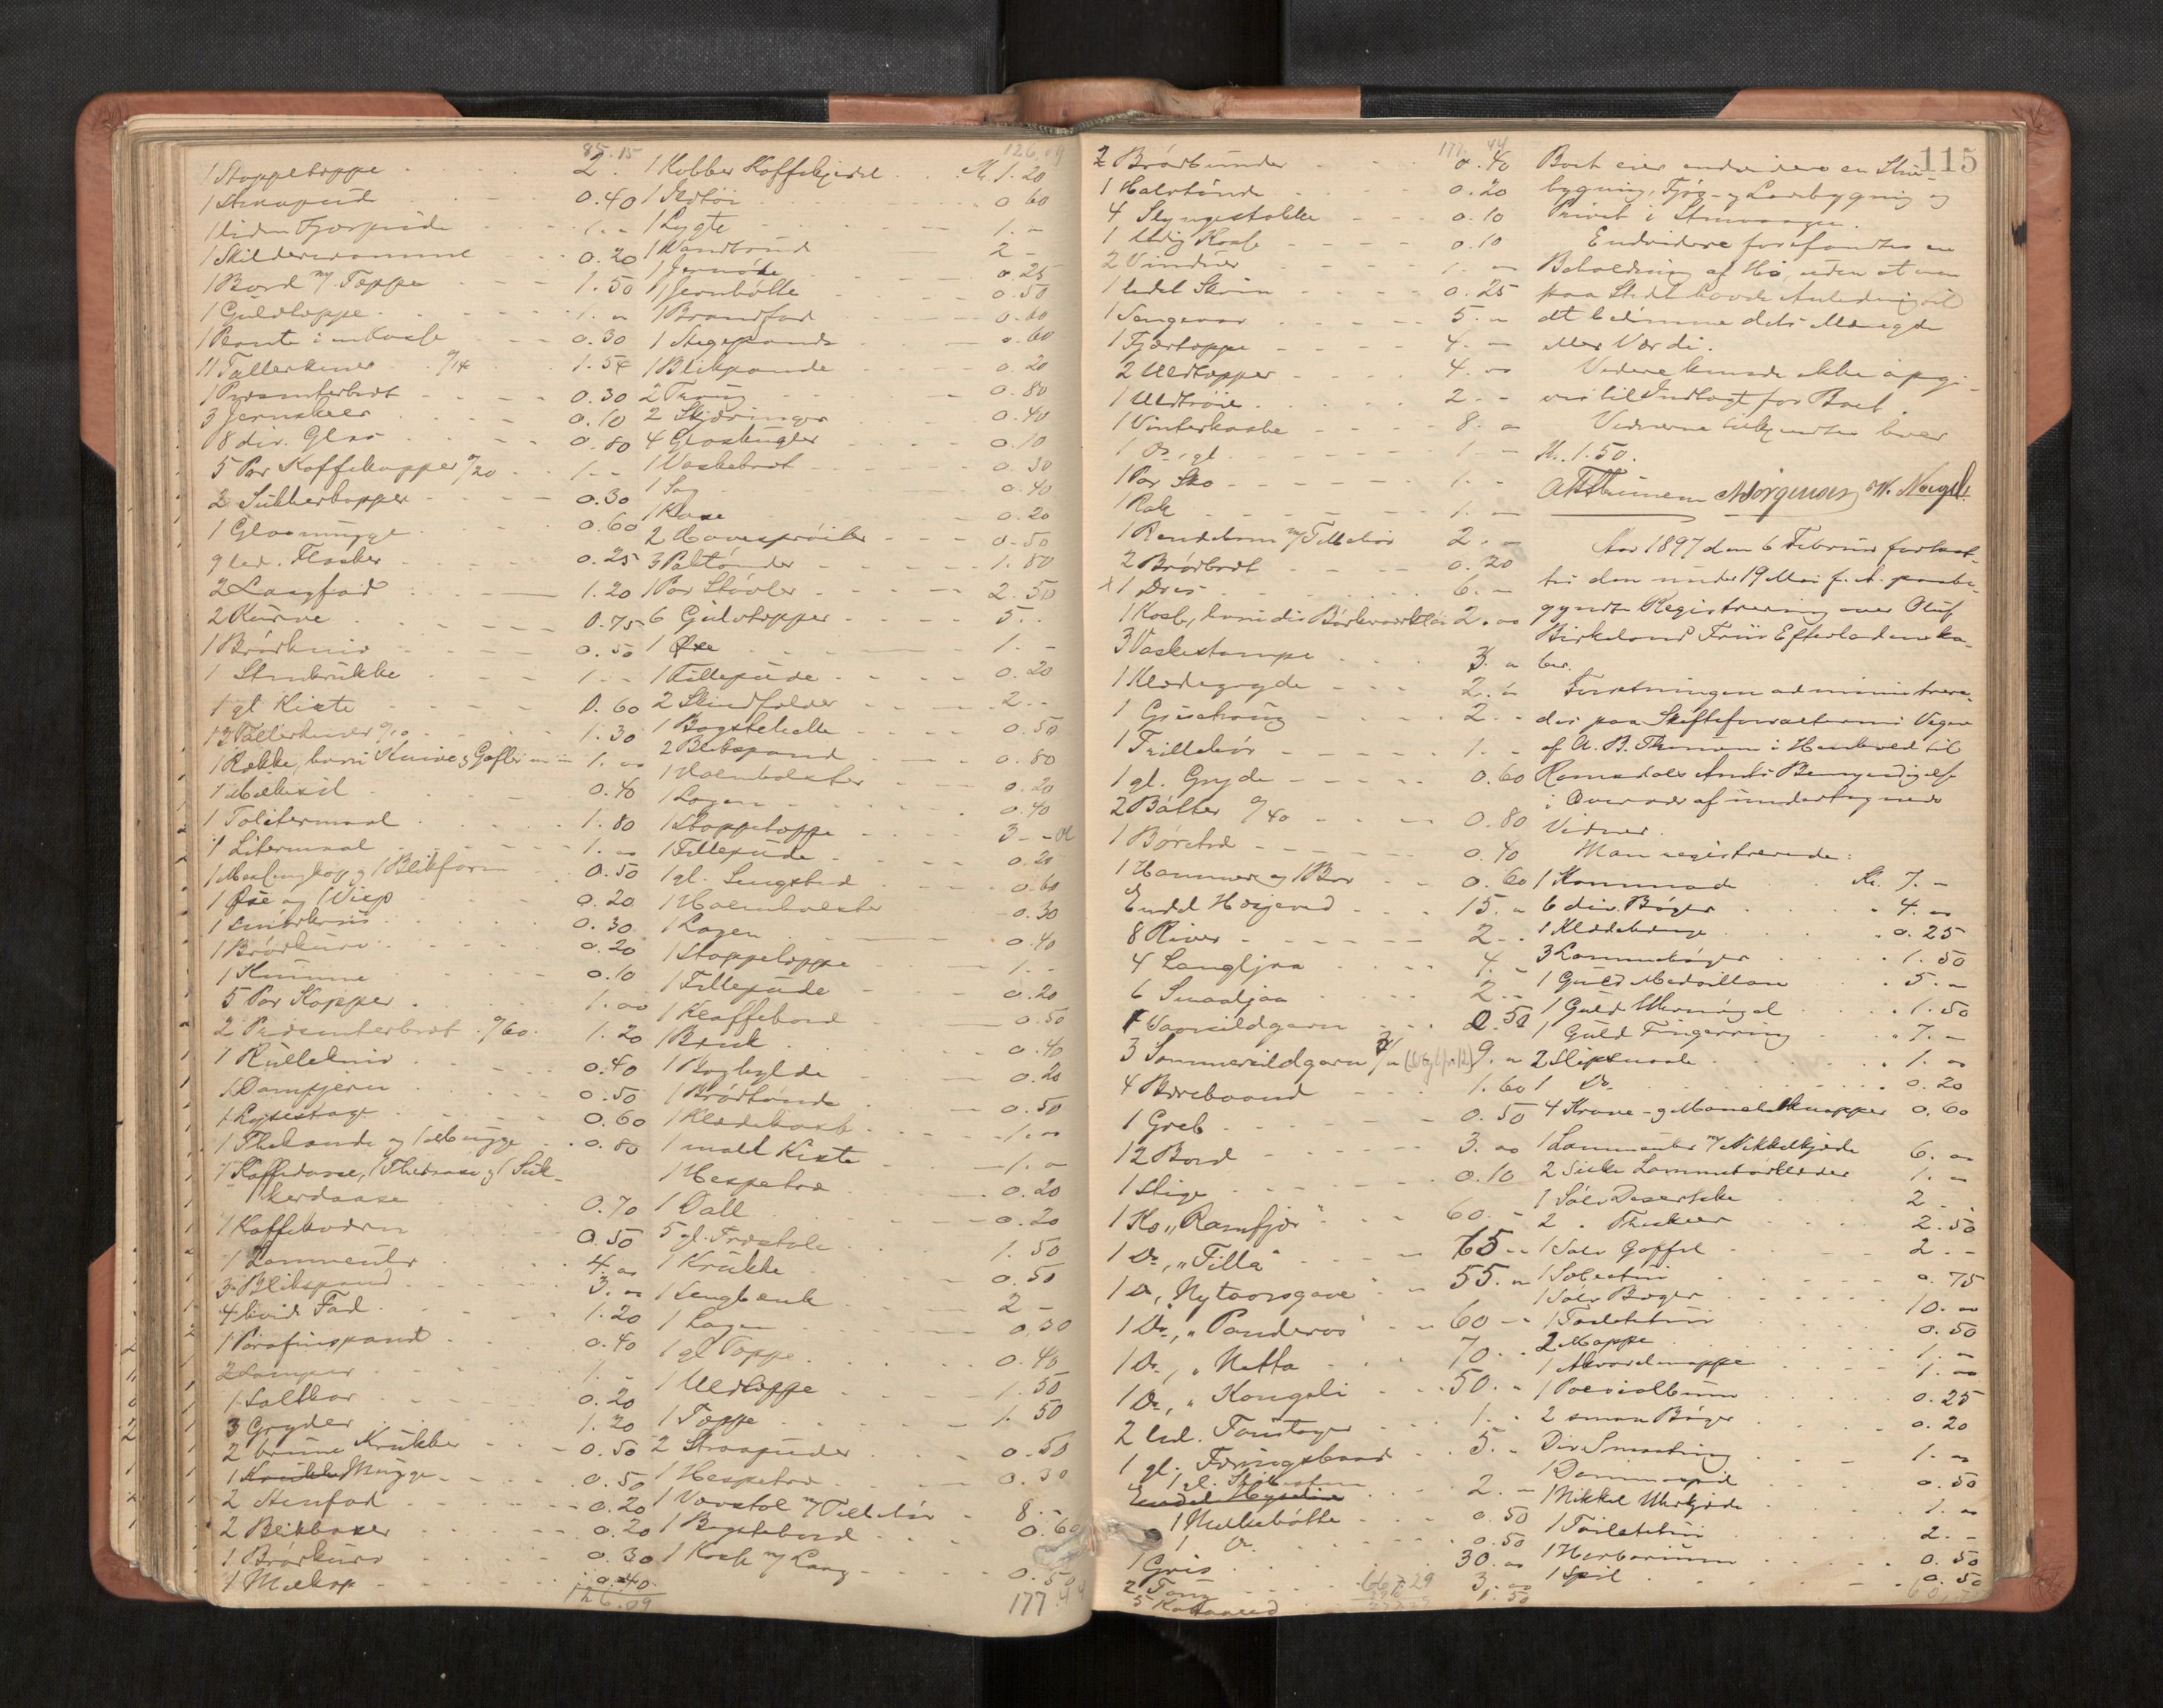 85.15
1 Stoppeteppe 2.
1 Straapude 0.40
1 liden Fjærpude 1. -
1 Skilderramme 0.20
1 Bord m/ Teppe 1.50
1 Gulvteppe 1. -
1 Plante i en Kasse 0.30
11 Tallerkener a/14 1.54
1 Præsenterbret 0.30
3 Jernskeer 0.10
8 div. Glas 0.80
5 Par Kaffekopper a/20 1. -
2 Sukkerkopper 0.30
1 Glasmugge 0.60
9 led. Flasker 0.25
2 Langfad 1.20
2 Kurve 0.75
1 Brødkniv 0.50
1 Stenkrukke 1. -
1 gl Kiste 0.60
13 Tallerkener a/10 1.30
1 Kække, hvori Knive og Gafler 1. -
1 Melkesil 0.40
1 Tolitermaal 1.80
1 Litermaal 1. -
1 Messingkop og 1 Blikform 0.50
1 Øse og 1 Visp 0.20
1 Smørkrus 0.30
1 Brødkurv 0.20
1 Kumme 0.10
5 Par Kopper 1.00
2 Præsenterbret a/60 1.20
1 Rullekniv 0.40
1 Dampjern 0.50
1 Lysestage 0.60
1 Thekande og 1 Mugge 0.80
1 Kaffedaase, 1 Thedaase og 1 Suk-
kerdaase 0.70
1 Kaffekværn 0.50
1 Lommeuhr 4. -
3 Blikspand 3. -
4 hvide Fad 1.20
1 Parafinspand 0.40
2 Lamper 1. -
1 Saltkar 0.20
3 Gryder 1.20
2 brune Krukker 0.50
1 Krukke Mugge 0.50
2 Stenfad 0.20
2 Blikbokser 0.20
1 Brødkurv 0.30
1 Melkop 0.40
126.09
126.09
1 Kobber Kaffekjedel Kr. 1.20
1 Ildtøi 0.60
1 Lygte 1. -
1 Vandtønde 2 -
1 Jernøse 0.25
1 Jernbøtte 0.50
1 Brandfad 0.60
1 Stegepande 0.60
1 Blikpande 0.20
2 Traug 0.80
2 Skjæringer 0.40
4 Glaskugler 0.10
1 Vaskebret 0.30
1 Sag 0.40
1 Kløve 0.20
2 Havesprøiter 0.50
3 Saltønder 1.80
1 Par Støvler 2.50
6 Gulvtepper 5. -
1 Øxe 1. -
1 Fillepude 0.20
2 Skindfelder 2. -
1 Bagstehelle 0.50
2 Blikspand 0.80
1 Halmbolster 0.20
1 Lagen 0.40
1 Stoppeteppe 3 -
1 Fillepude 0.20
1 gl. Sengsted 0.60
1 Halmbolster 0.30
1 Lagen 0.40
1 Stoppeteppe 1. -
1 Fillepude 0.20
1 Klaffebord 0.50
1 Bænk 0.40
1 Boghylde 0.20
1 Brødtønde 0.50
1 Klædekasse 1. -
1 malt Kiste 1. -
1 Hespetræ 0.20
1 Dall 0.20
5 gl. Træstole 1.50
1 Krukke 0.50
1 Sengbænk 2 -
1 Lagen 0.30
1 gl Teppe 0.40
1 Uldteppe 1.50
1 Teppe 1.50
2 Straapuder 0.50
1 Hespetræ 0.30
1 Vævstol m/ Tilbehør 8. -
1 Bagstebord 0.60
1 Kasse m/ Laag 0.50
177.44
177.44
2 Brødtønder 0.40
1 Halvtønde 0.20
4 Slyngestokke 0.10
1 ledig Kasse 0.10
2 Vinduer 1. -
1 ledet Skrin 0.25
1 Sengevar 5. -
1 Fjærteppe 4. -
2 Uldtepper 4. -
1 Uldtrøie 2. -
1 Vinterkaabe 8. -
1 Do., gl. 1. -
1 Par Sko 1. -
1 Rok 1. -
1 Rendebom m/ Tilbehør 2. -
2 Brødbret 0.20
x 1 Dres 6. -
1 Kasse, hvori div 2. -
3 Vaskestampe 3. -
1 Klædegryde 2. -
1 Gruetraug 2. -
1 Trillebør 1. -
1 gl. Gryde 0.60
2 Bøtter a/40 0.80
1 Børetræ 0.40
1 Hammer og 1 Bor 0.60
Endel Hæsjeved 15. -
8 River 2. -
4 Langljaa 4. -
6 Smaaljaa 2. -
1 Vaarsildgarn 0.50
3 Sommersildgarn 9. -
4 Bærebaand 1.60
1 Greb 0.50
12 Bord 3. -
1 Stige 0.10
1 Ko „Ramfjør" 60. -
1 Do., „Filla" 65 -
1 Do, Nytaarsgave" 55. -
1 Do, „Panderos" 60 -
1 Do, „Netta 70. -
1 Do, „Kongeli 50. -
2 led. Foustager 1. -
1 gl. Færingsbaad 5. -
1 gl.
Endel 2. -
1 Melkebøtte 0.50
1 Do. 0.50
1 Gris 30. -
2 Tong 3. -
5 1.50
667.29
115
Boet eier endvidere en Stue-
bygning, Fjøs- og Ladebygning og
Privet i
Endvidere forefandtes en
Beholdning af Hø, uden at man
paa Stedet havde Anledning til
at bestemme dets Mængde
eller Værdi.
Videre kunde ikke opgi-
ves til Indtægt for Boet.
Vidnerne tilkjendtes hver
Kr. 1.50.
A B Thunem N Jørgensen M. Nergd.
Aar 1897 den 6 Februar fortsat-
tes den under 19 Mai f. A. paabe-
gyndte Registrering over Oluf
Birkeland Friis Efterladenska-
ber.
Forretningen administrere-
des paa Skifteforvalterens Vegne
af A. B. Thunem i Henhold til
Romsdals Amts Bemyndigelse
i Overvær af undertegnede
Vidner.
Man registrerede:
1 Kommode Kr. 7. -
6 div. Bøger 4. -
1 Klædehænge 0.25
3 Lommebøger 1.50
1 Guld Medaillon 5. -
1 Guld Uhrnøgel 1.50
1 Guld Fingerring 7. -
2 Slipsnaale 1. -
1 Do. 0.20
4 Krave- og Manchetknapper 0.60
1 Lommeuhr m/ Nikkelkjæde 6. -
2 Silke Lommetørklæder 1. -
1 Sølv Desertske 2. -
2 „ Theskeer 2.50
1 Sølv Gaffel 2. -
1 0.75
1 Sølv Bæger 10. -
1 Toiletetui 0.50
2 Mappe 1. -
1 1. -
1 Poesialbum 0.25
2 smaa Bøger 0.20
Div Smaating 1. -
1 Dominospil 0.50
1 Nikkel Uhrkjæde 1. -
1 Toiletetui 2. -
1 Herbarium 0.50
1 Spil 0.50